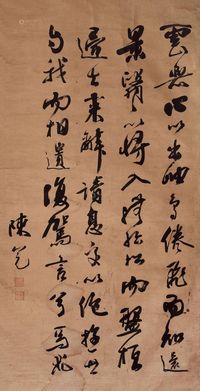 雲無心以出岫鳥倦飛而知還
景翳翳以將入撫孤松而盤桓
歸去來兮請息交以絕游世
與我而相遺復駕言兮焉求
陳